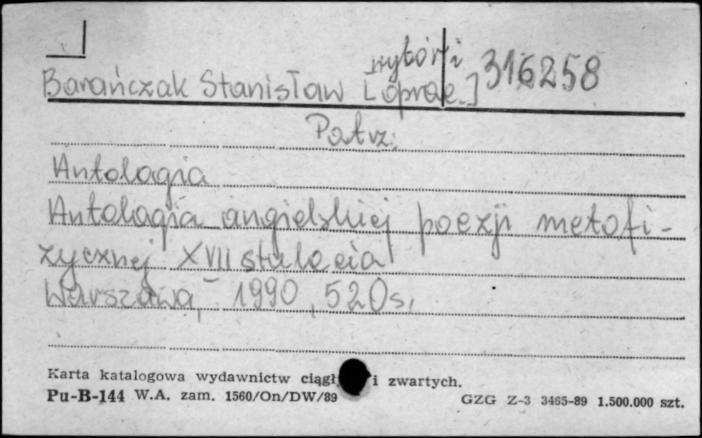 wybór i
316258
Barańczak Stanisław [oprac.]
Patrz:
Antologia
Antologia angielskiej poezji metafi-
zycznej XVII stulecia
Warszawa, 1990, 520s.
Karta katalogowa wydawnictw ciągł i zwartych.
Pu-B-144 W.A. zam. 1560/On/DW/89
GZG Z-3 3465-89 1.500.000 szt.